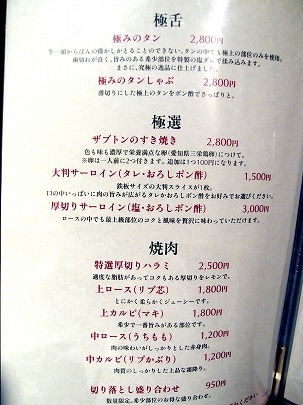 極舌
極みのタン 2,800円
牛一頭からほんの僅かしかとることのできない、タンの中でも極上の部位のみを使用。
歯切れが良く、旨みのある希少部位を特製の塩ダレで揉み込みます。
まさに、究極の逸品に仕上げました。
極みのタンしゃぶ 2,800円
薄切りにした極上のタンをポン酢でさっぱりと。
極選
ザブトンのすき焼き 2,800円
色も味も濃厚で栄養満点な卵(愛知県三栄鶏卵)につけて。
※卵は一人前に2つ付きます。追加は1つ100円になります。
大判サーロイン(タレ・おろしポン酢) 1,500円
鉄板サイズの大判スライスが1枚。
口の中いっぱいに肉の旨みが広がるタレかおろしポン酢をお好みでお選びください。
厚切りサーロイン(塩・おろしポン酢) 3,000円
ロースの中でも最上級部位のコクと風味を贅沢に味わっていただけます。
焼肉
特選厚切りハラミ 2,500円
適度な脂肪があってコクもある厚切りをレモンで。
上ロース(リブ芯) 1,800円
とにかく柔らかくジューシーです。
上カルビ(マキ) 1,800円
希少で一番旨みがある部位です。
中ロース(うちもも) 1,200円
肉の味わいがしっかりとした赤身肉。
中カルビ(リブかぶり) 1,200円
肉質のしっかりした上品な霜降り。
切り落とし盛り合わせ 950円
数量限定。希少部位のお得な盛り合わせ。
ください